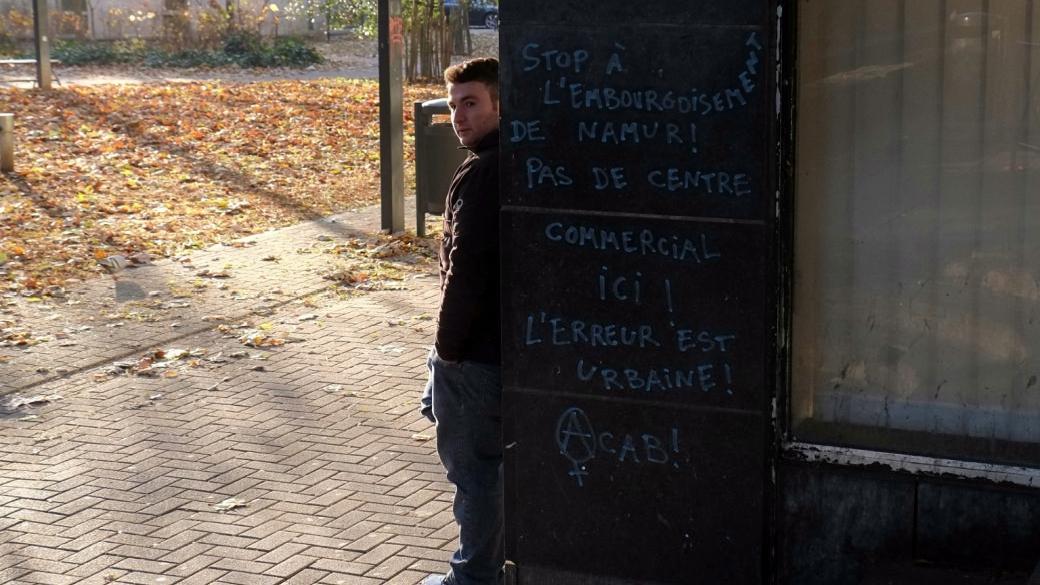 STOP À
L'EMBOURGOISEMENT
DE NAMUR!
PAS DE CENTRE
COMMERCIAL
ICI !
L'ERREUR EST
URBAINE!
ACAB!